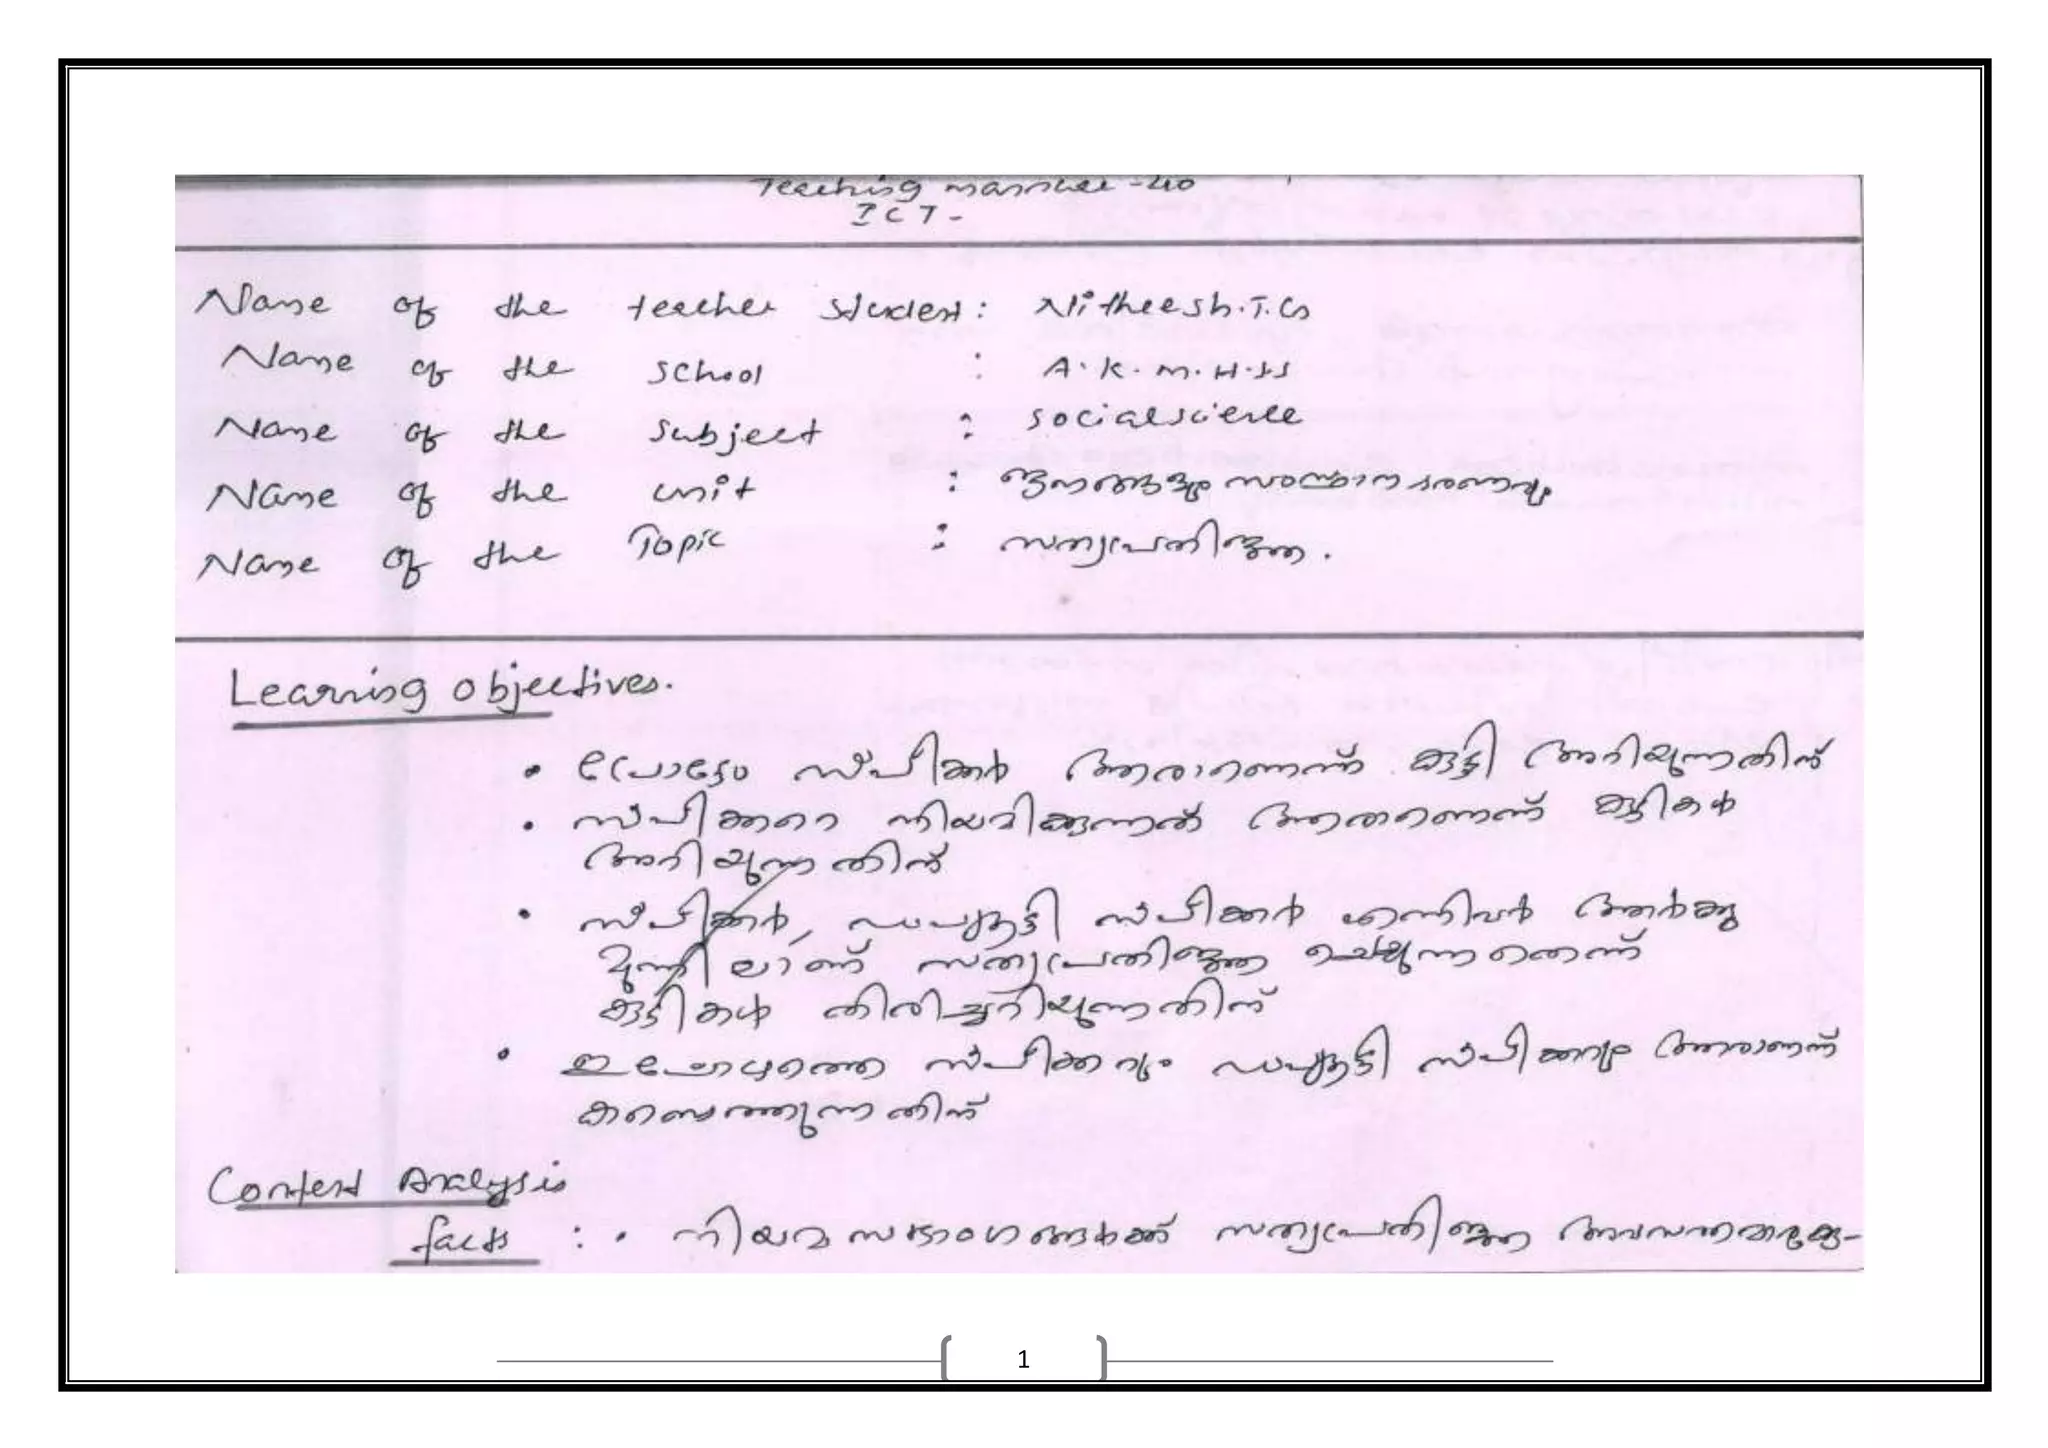 Teaching mannual - 40
ICT -
Name of the teacher student : Nitheesh.T.G
Name of the school : A.K.M.H.SS
Name of the subject : socialscience
Name of the unit : ജനങ്ങളും സംസ്ഥാന ഭരണവും
Name of the Topic : സത്യപ്രതിജ്ഞ.
Learning objectives.
• പ്രോടേം സ്പീക്കർ ആരാണെന്ന് കുട്ടി അറിയുന്നതിന്
• സ്പീക്കറെ നിയമിക്കുന്നത് ആരാണെന്ന് കുട്ടികൾ
അറിയുന്നതിന്
• സ്പീക്കർ, ഡപ്യൂട്ടി സ്പീക്കർ എന്നിവർ ആർക്കു
മുന്നിലാണ് സത്യപ്രതിജ്ഞ ചെയ്യുന്നതെന്ന്
കുട്ടികൾ തിരിച്ചറിയുന്നതിന്
• ഇപ്പോഴത്തെ സ്പീക്കറും ഡപ്യൂട്ടി സ്പീക്കറും ആരാണന്ന്
കണ്ടെത്തുന്നതിന്
Content Analysis
facts : • നിയമസഭാംഗങ്ങൾക്ക് സത്യപ്രതിജ്ഞ
1